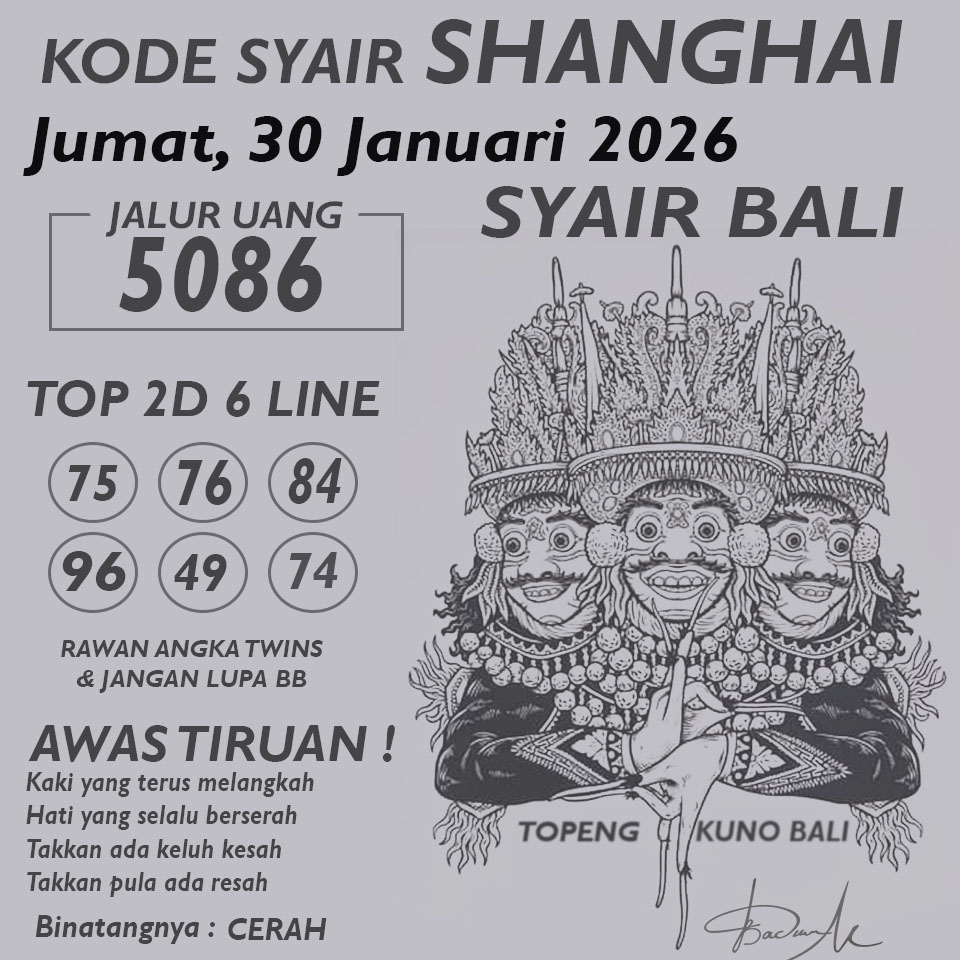 KODE SYAIR SHANGHAI
Jumat, 30 Januari 2026
SYAIR BALI
JALUR UANG
5086
TOP 2D 6 LINE
75 76 84
96 49 74
RAWAN ANGKA TWINS
& JANGAN LUPA BB
AWAS TIRUAN !
Kaki yang terus melangkah
Hati yang selalu berserah
Takkan ada keluh kesah
Takkan pula ada resah
Binatangnya : CERAH
TOPENG KUNO BALI